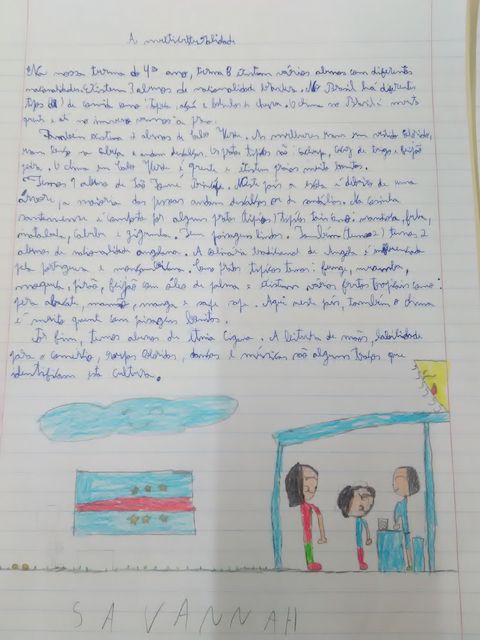 A multiculturalidade
Na nossa turma do 4º ano, turma B existem vários alunos com diferentes
nacionalidades. Existem 3 alunos de nacionalidade brasileira. No Brasil há diferentes
tipos de comida como: tapioca, açaí e bolinhos de chuva. O clima no Brasil é muito
quente e até no inverno vamos à praia.
Também existem 2 alunos de Cabo Verde. As mulheres usam um vestido colorido,
usam lenço na cabeça e andam descalças. Os pratos típicos são cachupa, cuscuz de milho e feijão
pedra. O clima em Cabo Verde é quente e existem praias muito bonitas.
Temos 1 aluno de São Tomé e Príncipe. Neste país a escola é debaixo de uma
árvore, a maioria das pessoas andam descalços ou de sandálias. Na cozinha
santomense é composta por alguns pratos típicos tais como: mandioca, fuba,
matabala, calulu e jogumba. Tem paisagens lindas. Também temos 2
alunos de nacionalidade angolana. A culinária tradicional de Angola é influenciada
pela portuguesa e moçambicana. Como pratos típicos temos: funge, muamba,
moqueca, pirão, feijão com óleo de palma e existem vários frutos tropicais como:
pera abacate, mamão, manga e sape sape. Aqui neste país, também o clima
é muito quente com paisagens bonitas.
Por fim, temos alunos de etnia cigana. A leitura de mãos, habilidade
para o comércio, roupas coloridas, danças e músicas são alguns traços que
identificam esta cultura.
SAVANNAH